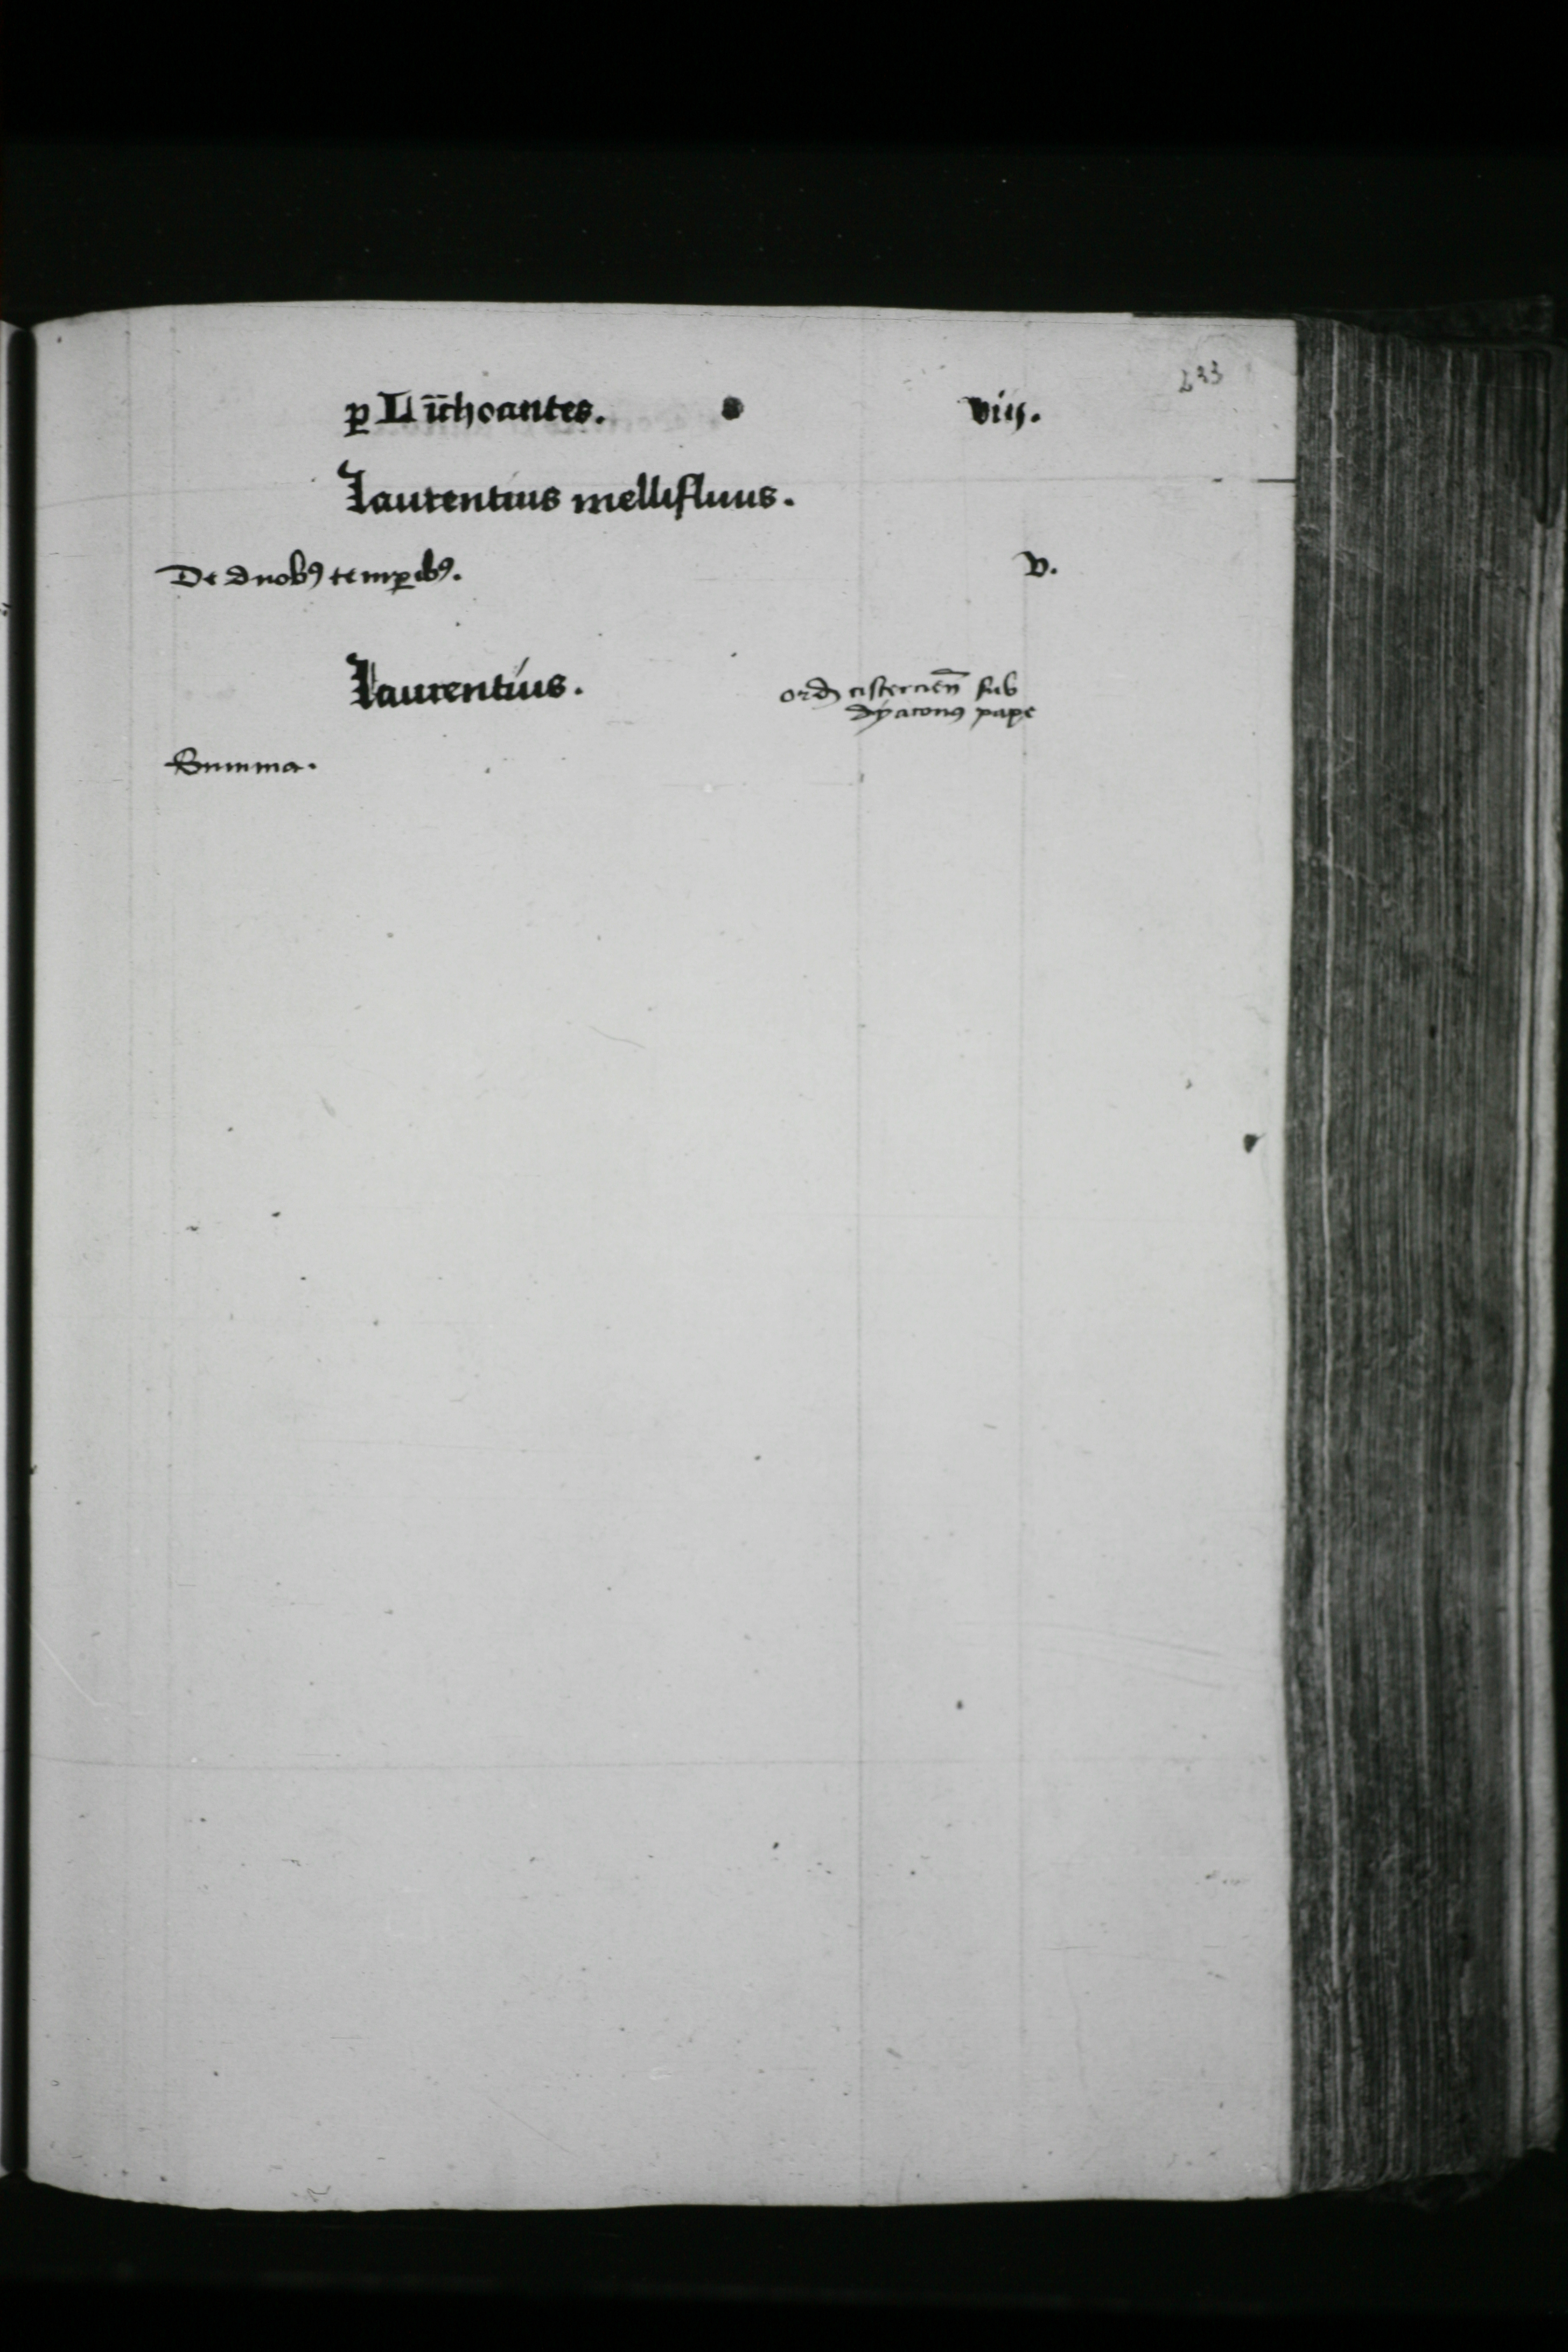 233
ꝑ L īchoantes. viij.
Laurentius mellifluus.
De duobꝰ temꝑibꝰ. v.
Laurentius. ord cistercien̄ sub
dyaconꝰ pape
Summa.